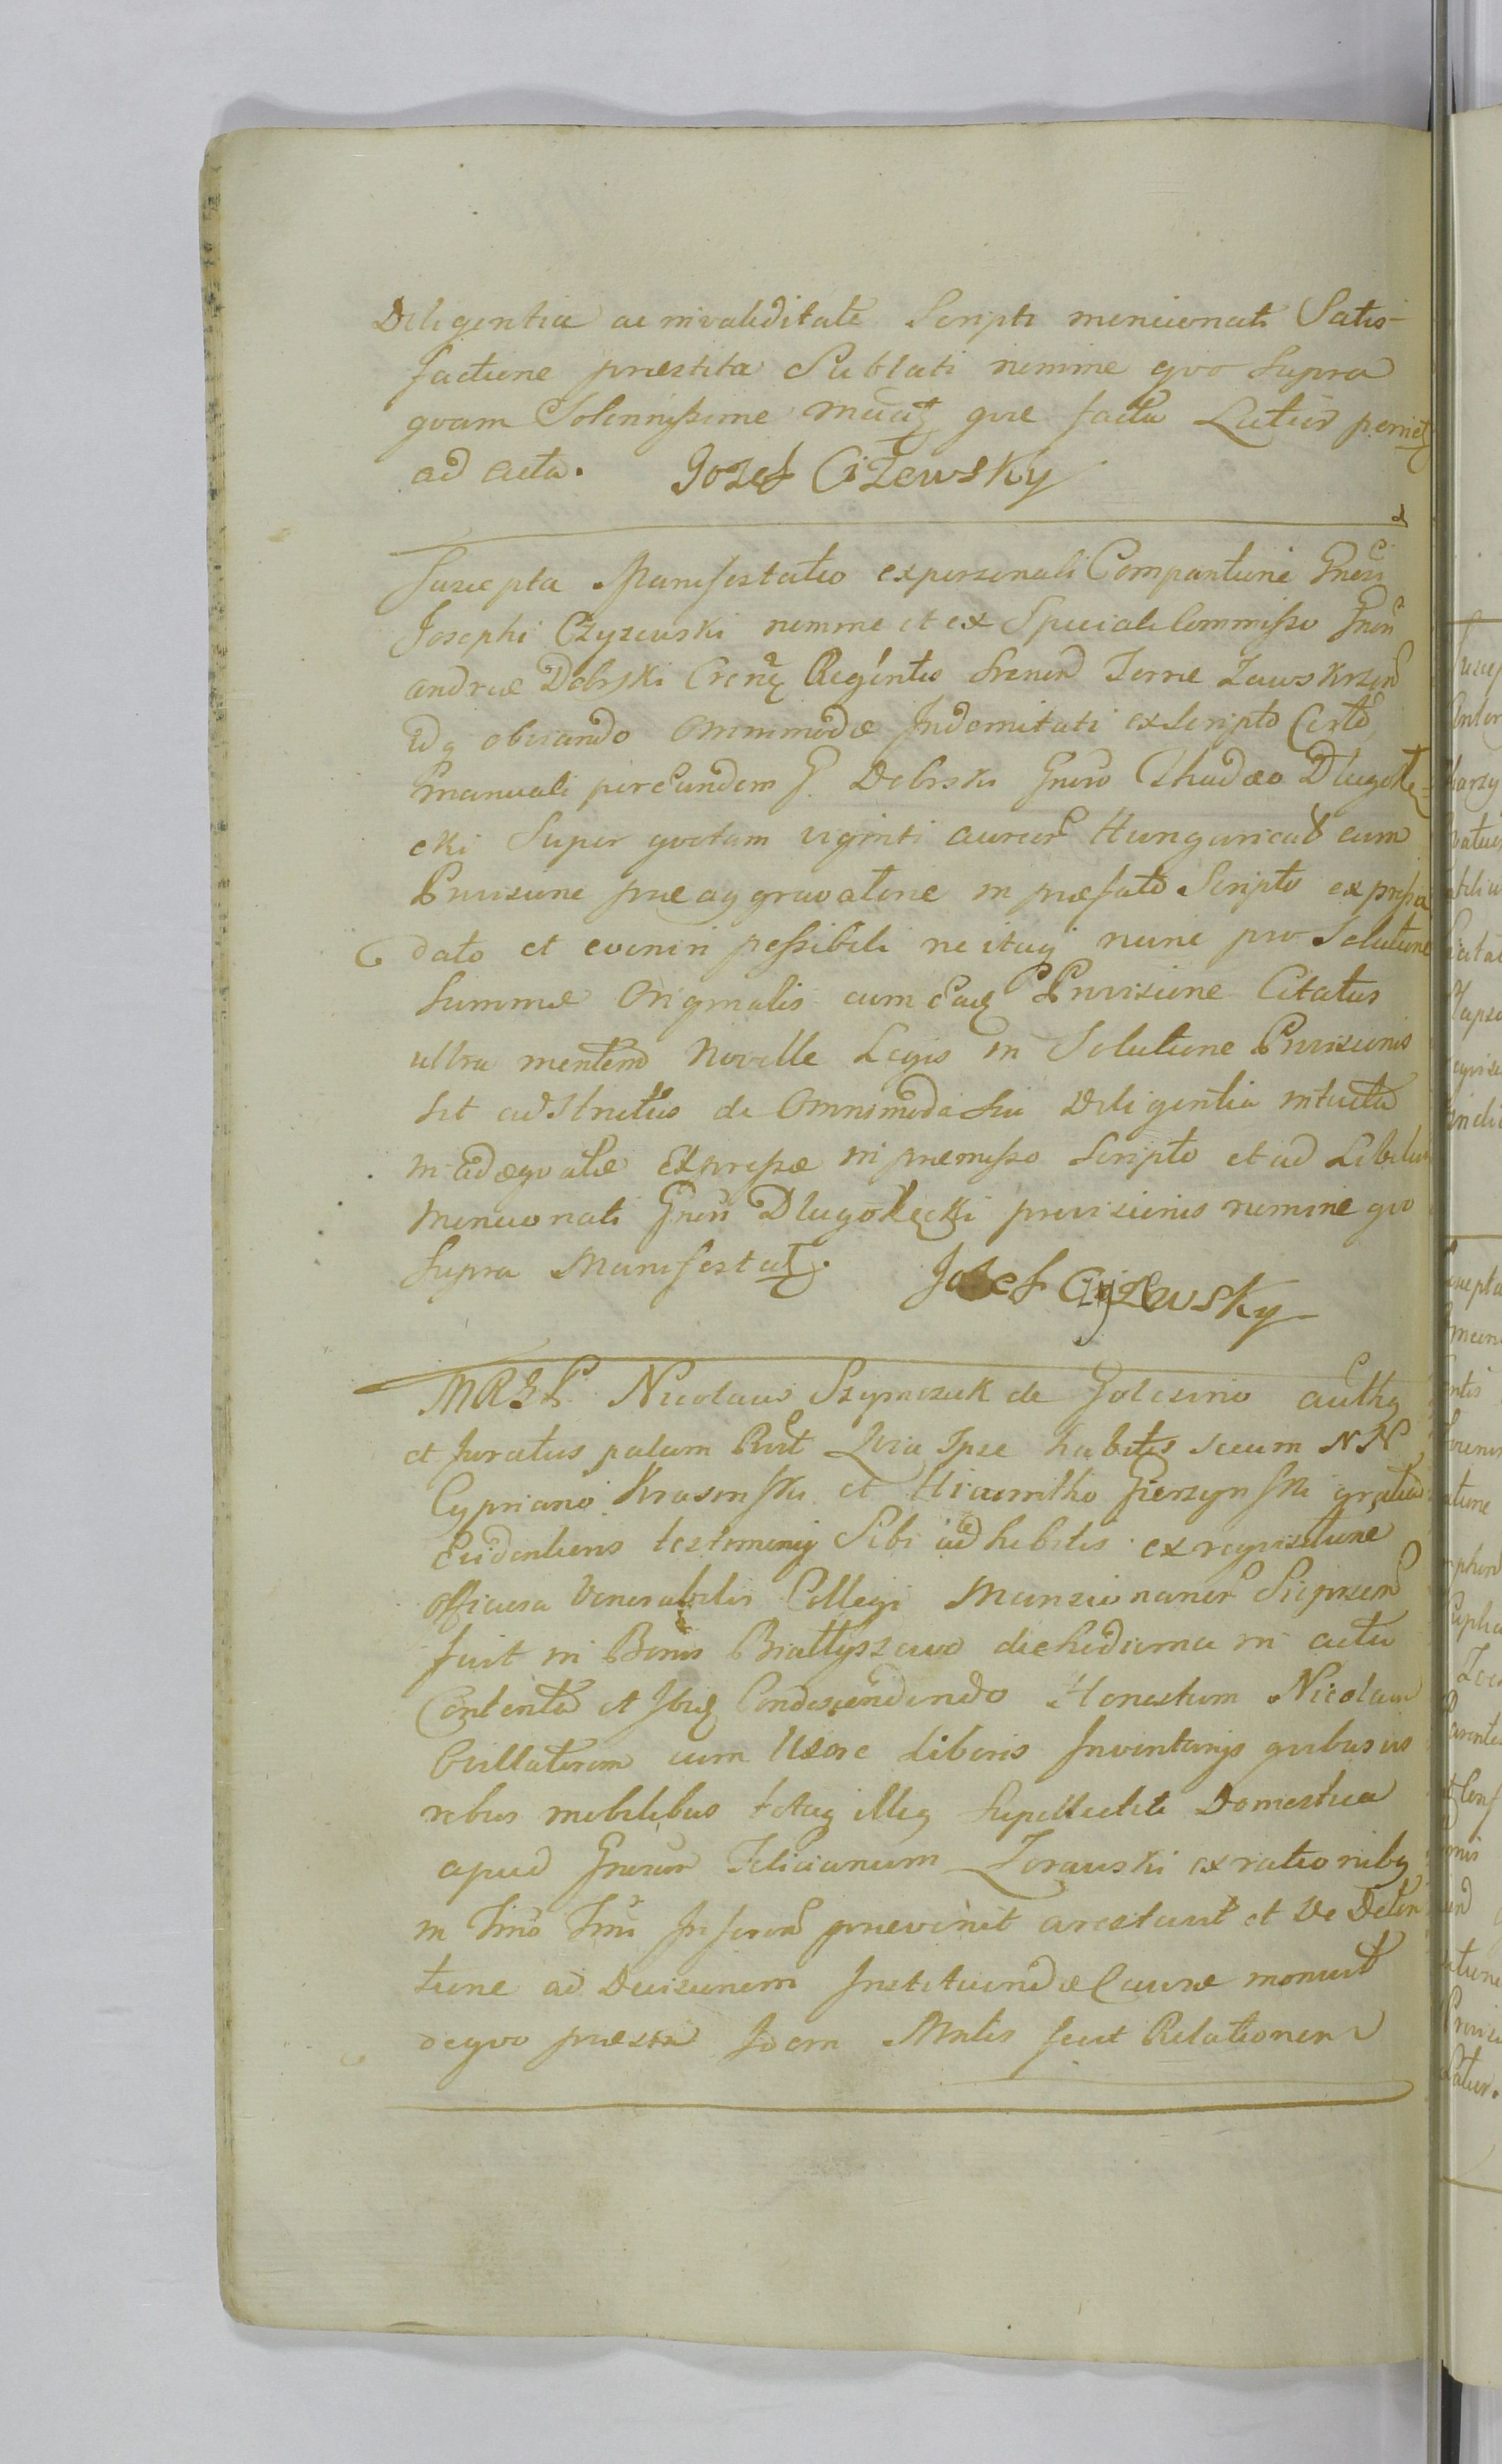 Diligentia ac invaliditate Scripti mencionati Satis-
factione præstita Sublati nomine quo supra
quam Solennissime ad
ad acta. Jozef Cizewsky
Suscepta Manifestatio ex personali Comparitione Gnosi
Josephi Czyzewski nomine et ex Speciali Commisso Gnosi
andreæ Dobrski Regentis Terræ Zawskrzen
idq obviando Omnimodæ Indemnitati ex Scripto Certo
Manuali per Eundem G. Dobrski Gnoso Thadæo Dlugole-
cki Super quotam viginti aureor Hungarical cum
Provisione præaggravatione in præfato Scripto expressa
dato et eveniri possibili ne itaq nunc pro Solutione
Summæ Originalis cum Eaq Provisione Citatus
ultra mentem Novellæ Legis in Solutione Provisionis
sit adstrictus de Omnimoda Sui Diligentia intuitu
inadæquatæ Expressæ in præmisso Scripto et ad Libitum
Mencionati Gnosi Dlugołęcki provisionis nomine quo
supra Manifestat. Jozef Czyzewsky
Nicolaus Szymczak de Golczino auth
et Juratus palam Quia Ipse habitis secum NN
Cypriano Krasinski et Hiacintho Gierzynski gratia
Evidentioris testimonij Sibi adhibitis ex requisitione
officiosa Venerabilis Collegi Mansionarior Sieprcen
fuit in Bonis Białłyszewo die hodierna in actu
Contenta et Ibiq Condescendendo Honestum Nicolaum
cum Uxore Liberis Inventarijs quibusvis
rebus mobilibus totaq illiq Supellectili Domestica
apud Gnosum Felicianum Zorawski ex rationibq
in Tmo Tmi Inferend prævenit arestavit et de Deten
tione ad Decisionem Instituendæ Causæ monuit
de quo præsen Idem Mnlis fecit Relationem